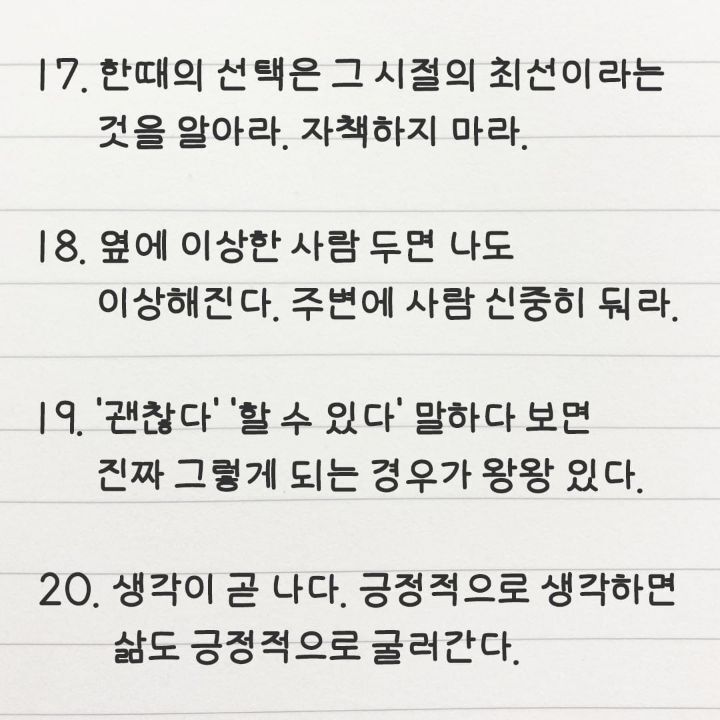 17. 한때의 선택은 그 시절의 최선이라는
것을 알아라. 자책하지 마라.
18. 옆에 이상한 사람 두면 나도
이상해진다. 주변에 사람 신중히 둬라.
19. '괜찮다' '할 수 있다' 말하다 보면
진짜 그렇게 되는 경우가 왕왕 있다.
20. 생각이 곧 나다. 긍정적으로 생각하면
삶도 긍정적으로 굴러간다.